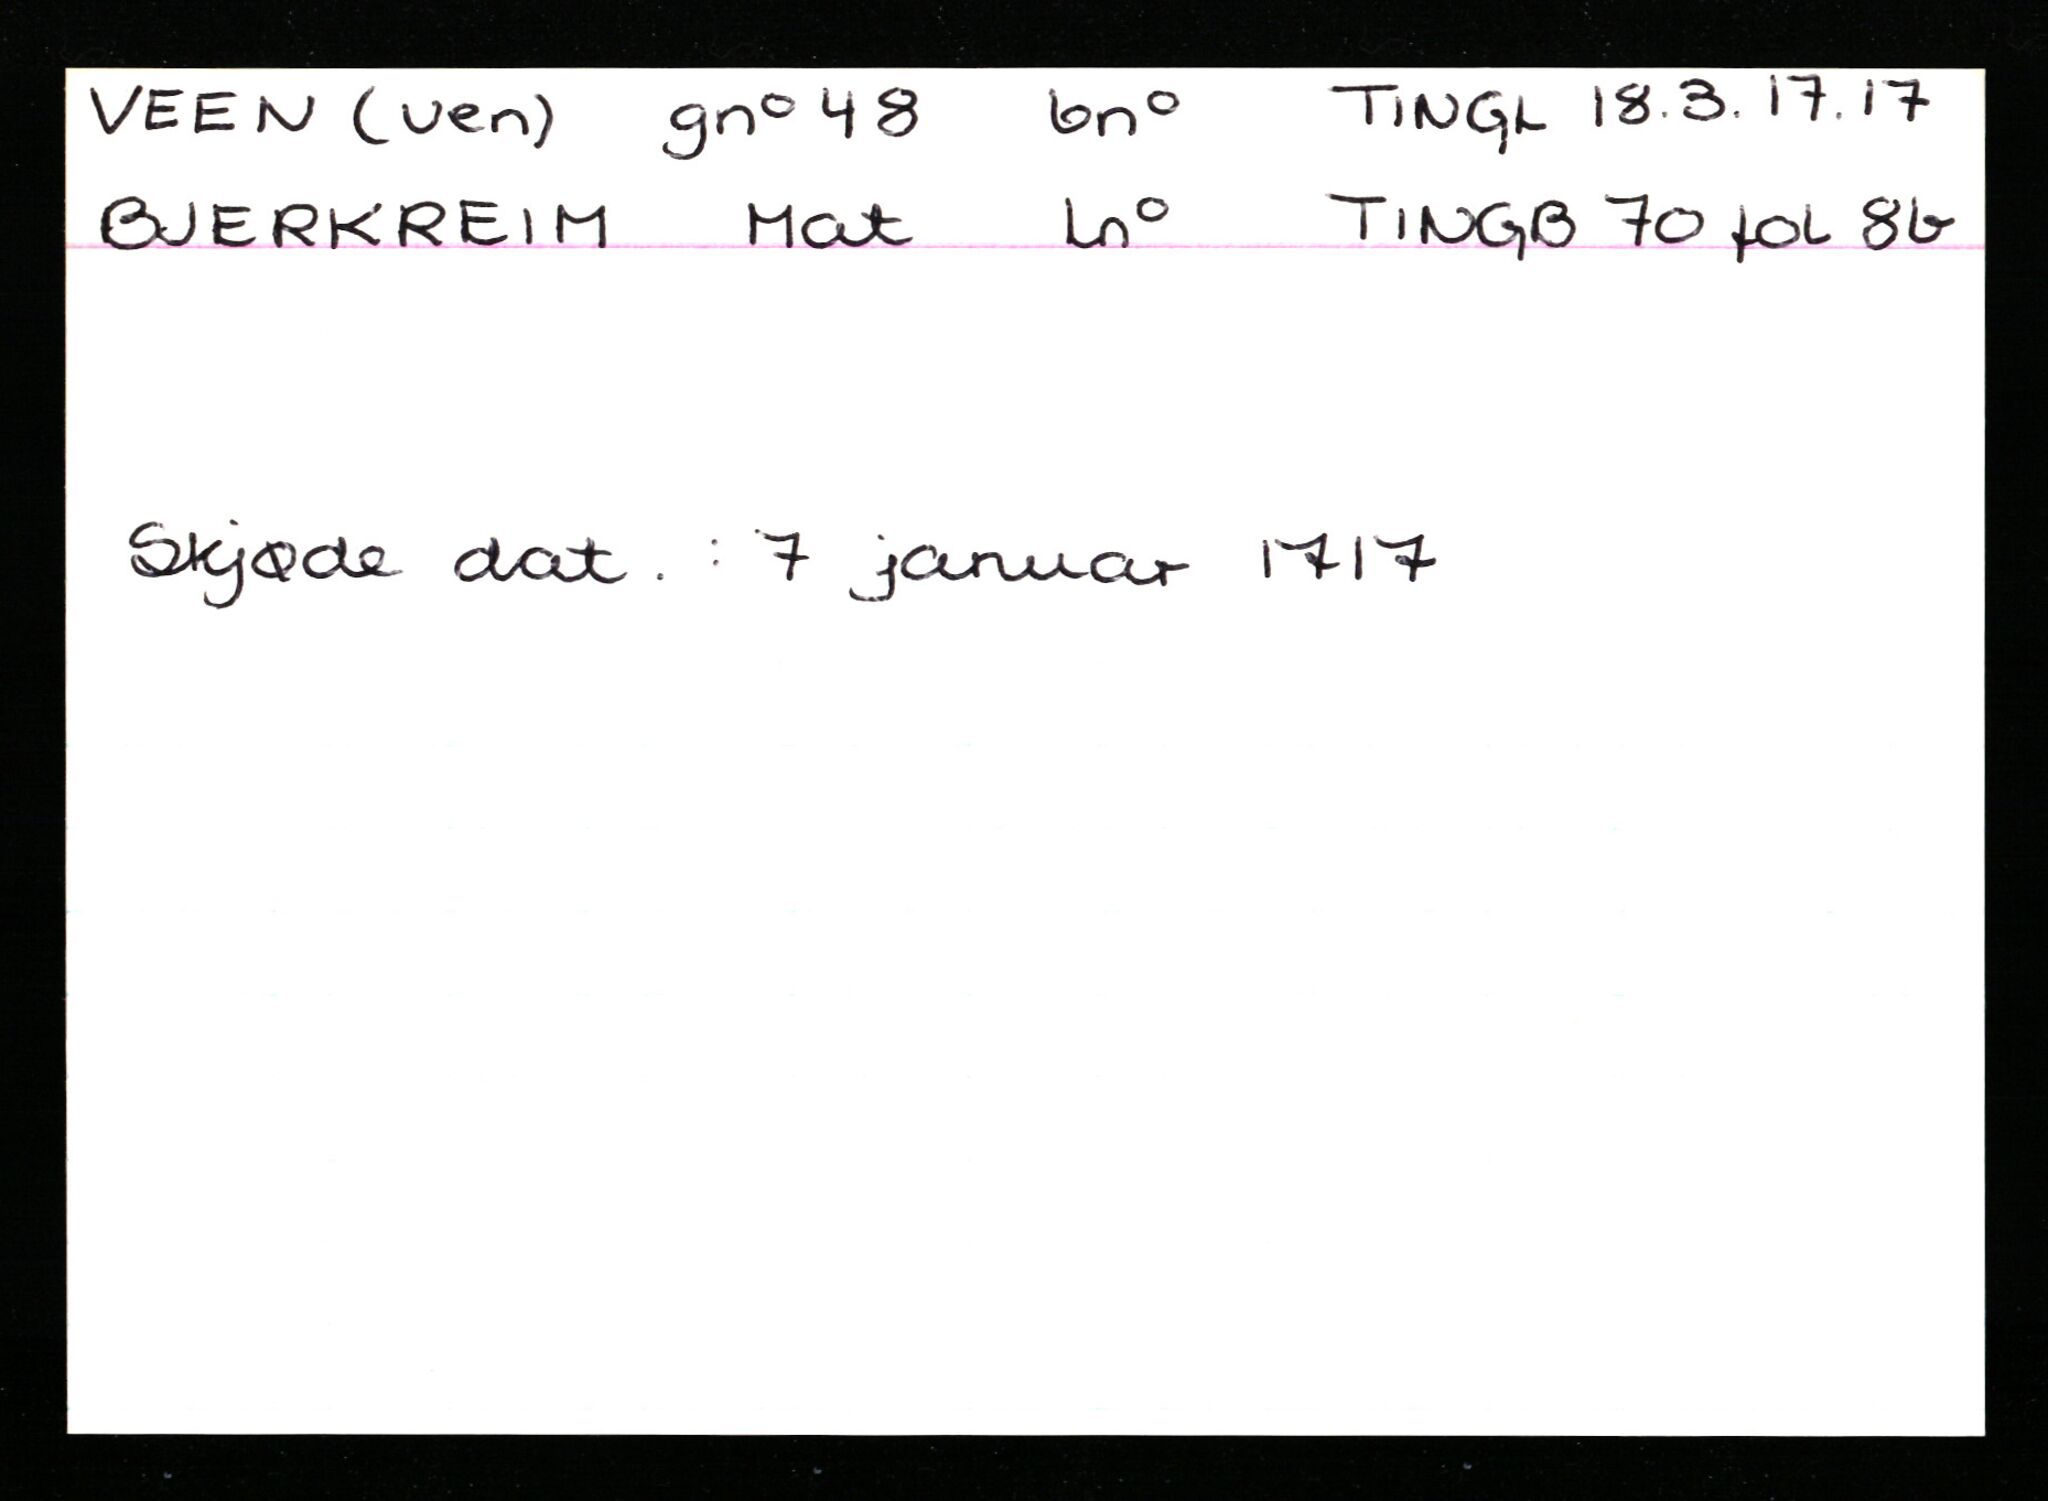 VEEN (ven) gnº 48 bnº TINGL 18.3.17.17
BJERKREIM Mat Lnº TINGB 70 fol 8b
Skjøde dat. : 7 januar 1717